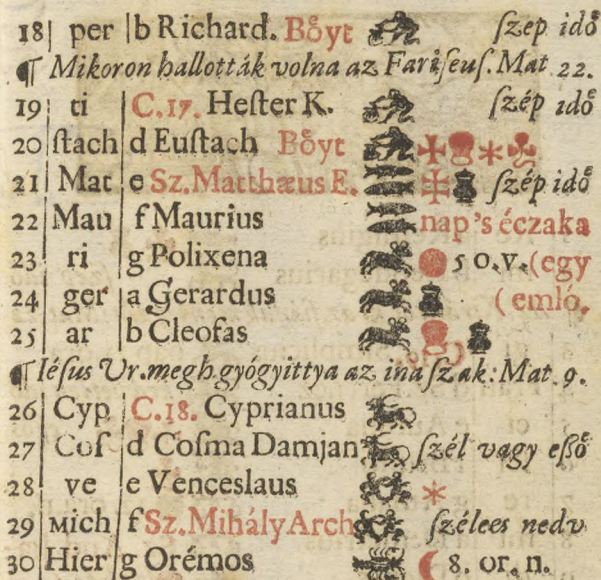 18 per b Richard. Bőyt ſzep idő
¶ Mikoron hallották volna az Fariſeuſ. Mat 22.
19 ti C.17. Heſter K. ſzép idő
20 ſtach d Euſtach Bőyt
21 Mat e Sz. Matthæus E. ſzép idő
22 Mau f Maurius nap's éczaka
23 ri g Polixena 5 o.v. (egy
24 ger a Gerardus (emló.
25 ar b Cleofas
¶ Iéſus Ur. megh gyógyittya az ina ſzak: Mat 9.
26 Cyp C.18. Cyprianus
27 Coſ d Coſma Damjan ſzél vagy eſső
28 ve e Venceslaus
29 Mich f Sz. Mihály Arch ſzélees nedv
30 Hier g Orémos 8. or. n.